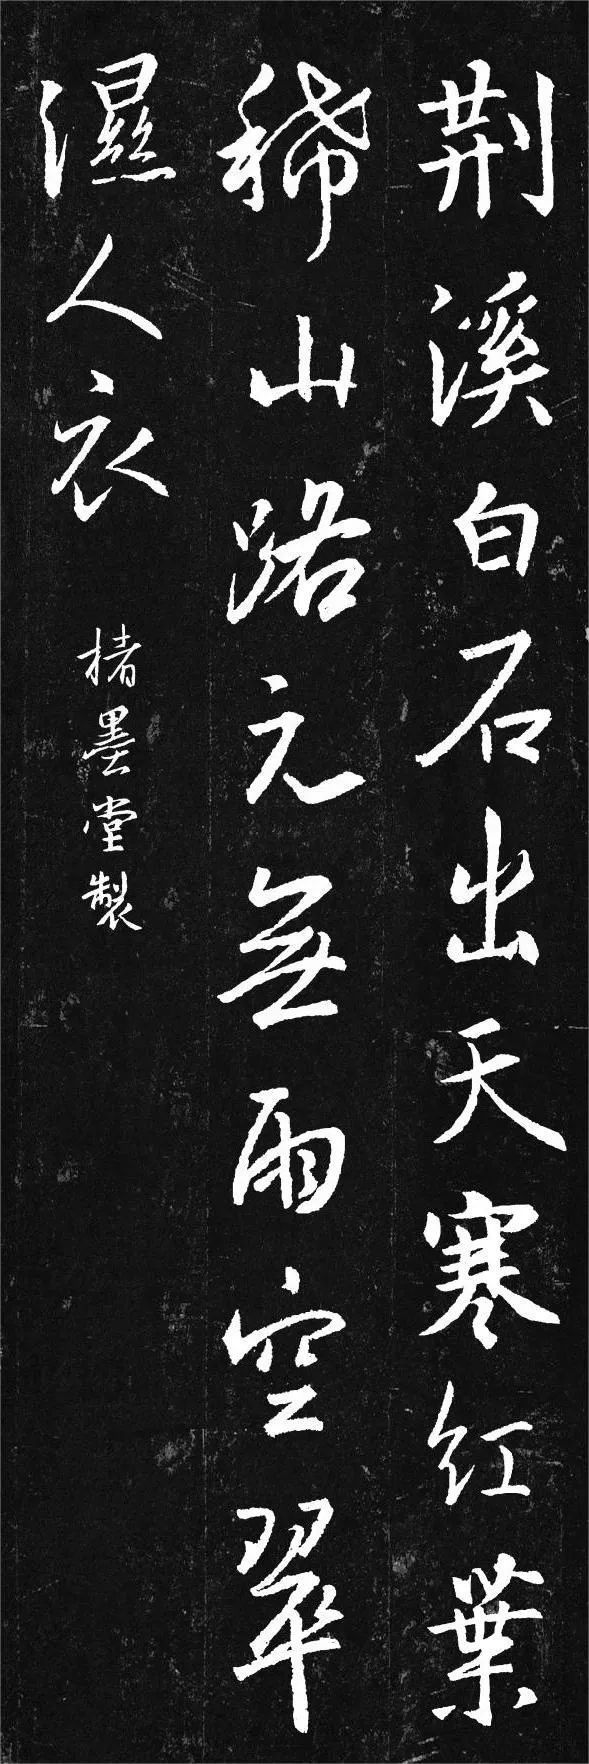 荆溪白石出天寒紅葉
稀山路元無雨空翠
濕人衣
楮墨堂製